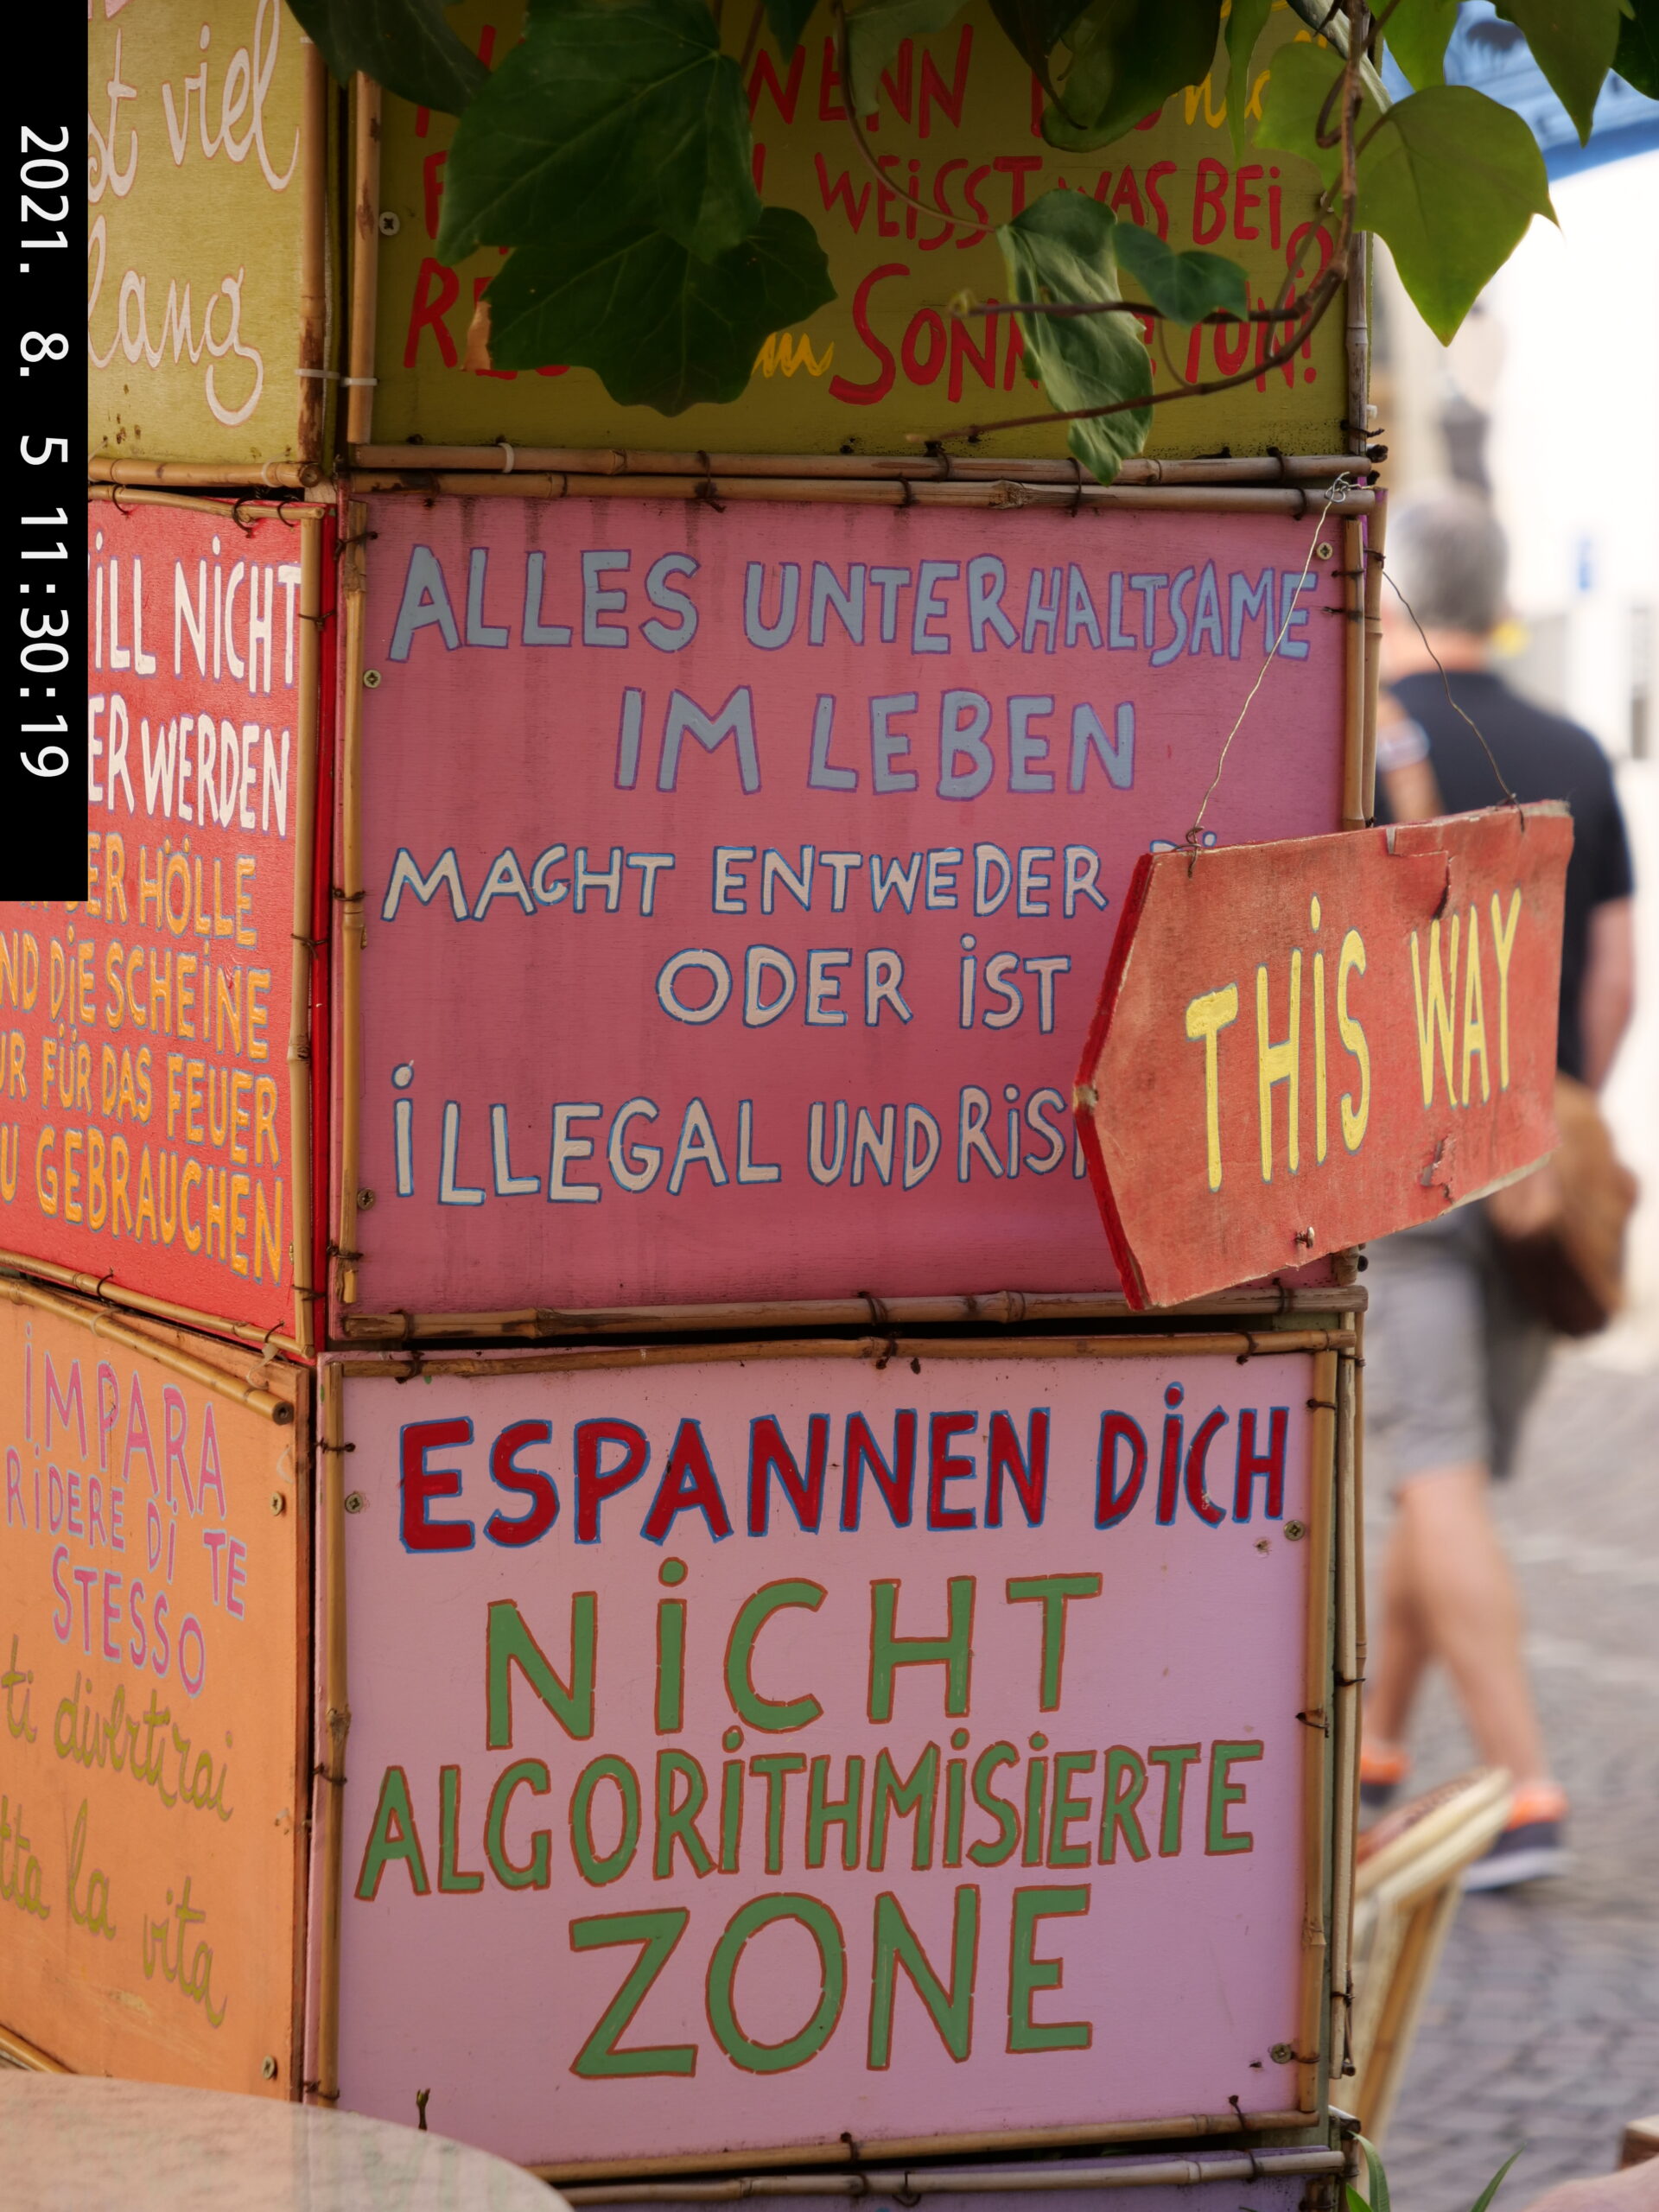 2021. 8. 5 11:30:19
st viel
lang
WENN
WEiSST WAS BEi
SONN TUN?
iLL NiCHT
ER WERDEN
DER HÖLLE
ND DiE SCHEiNE
UR FÜR DAS FEUER
ZU GEBRAUCHEN
ALLES UNTERHALTSAME
IM LEBEN
MACHT ENTWEDER
ODER iST
iLLEGAL UND RiS
THiS WAY
iMPARA
RiDERE Di TE
STESSO
ti divertirai
tta la vita
ESPANNEN DiCH
NiCHT
ALGORiTHMiSiERTE
ZONE